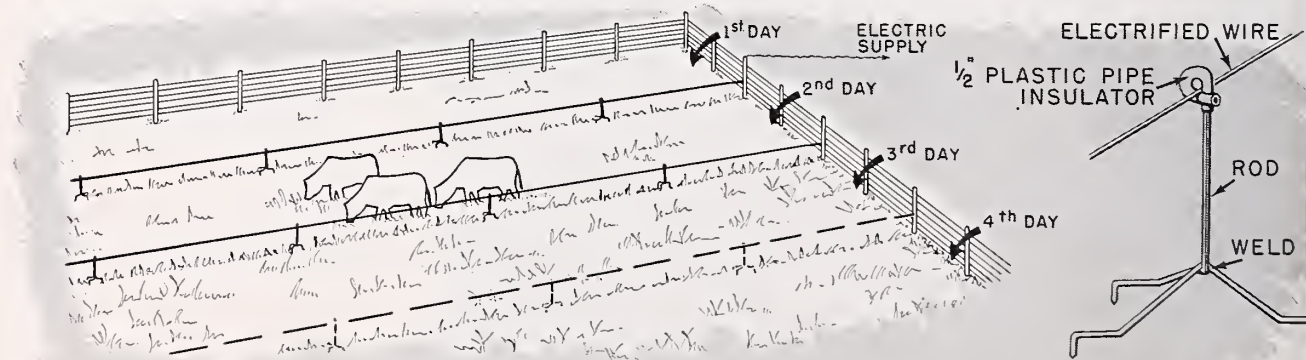 1st DAY
ELECTRIC
SUPPLY
2nd DAY
3rd DAY
4th DAY
ELECTRIFIED WIRE
1/2" PLASTIC PIPE
INSULATOR
ROD
WELD